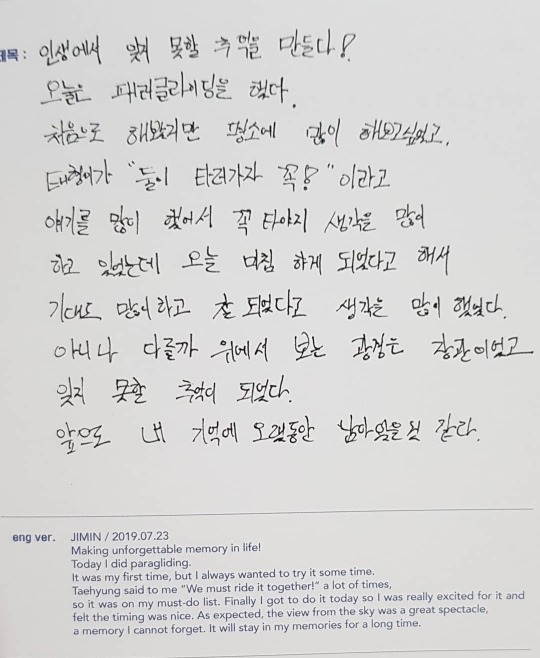 제목 : 인생에서 잊지 못할 추억을 만들다!
오늘은 패러글라이딩을 했다.
처음으로 해봤지만 평소에 많이 해보고싶었고,
태형이가 "둘이 타러가자 꼭!" 이라고
얘기를 많이 했어서 꼭 타야지 생각을 많이
하고 있었는데 오늘 마침 하게 되었다고 해서
기대도 많이하고 잘 되었다고 생각을 많이 했었다.
아니나 다를까 위에서 보는 광경은 장관이었고
잊지 못할 추억이 되었다.
앞으로 내 기억에 오랫동안 남아있을것 같다.
eng ver. JIMIN / 2019.07.23
Making unforgettable memory in life!
Today I did paragliding.
It was my first time, but I always wanted to try it some time.
Taehyung said to me "We must ride it together!" a lot of times,
so it was on my must-do list. Finally I got to do it today so I was really excited for it and
felt the timing was nice. As expected, the view from the sky was a great spectacle,
a memory I cannot forget. It will stay in my memories for a long time.